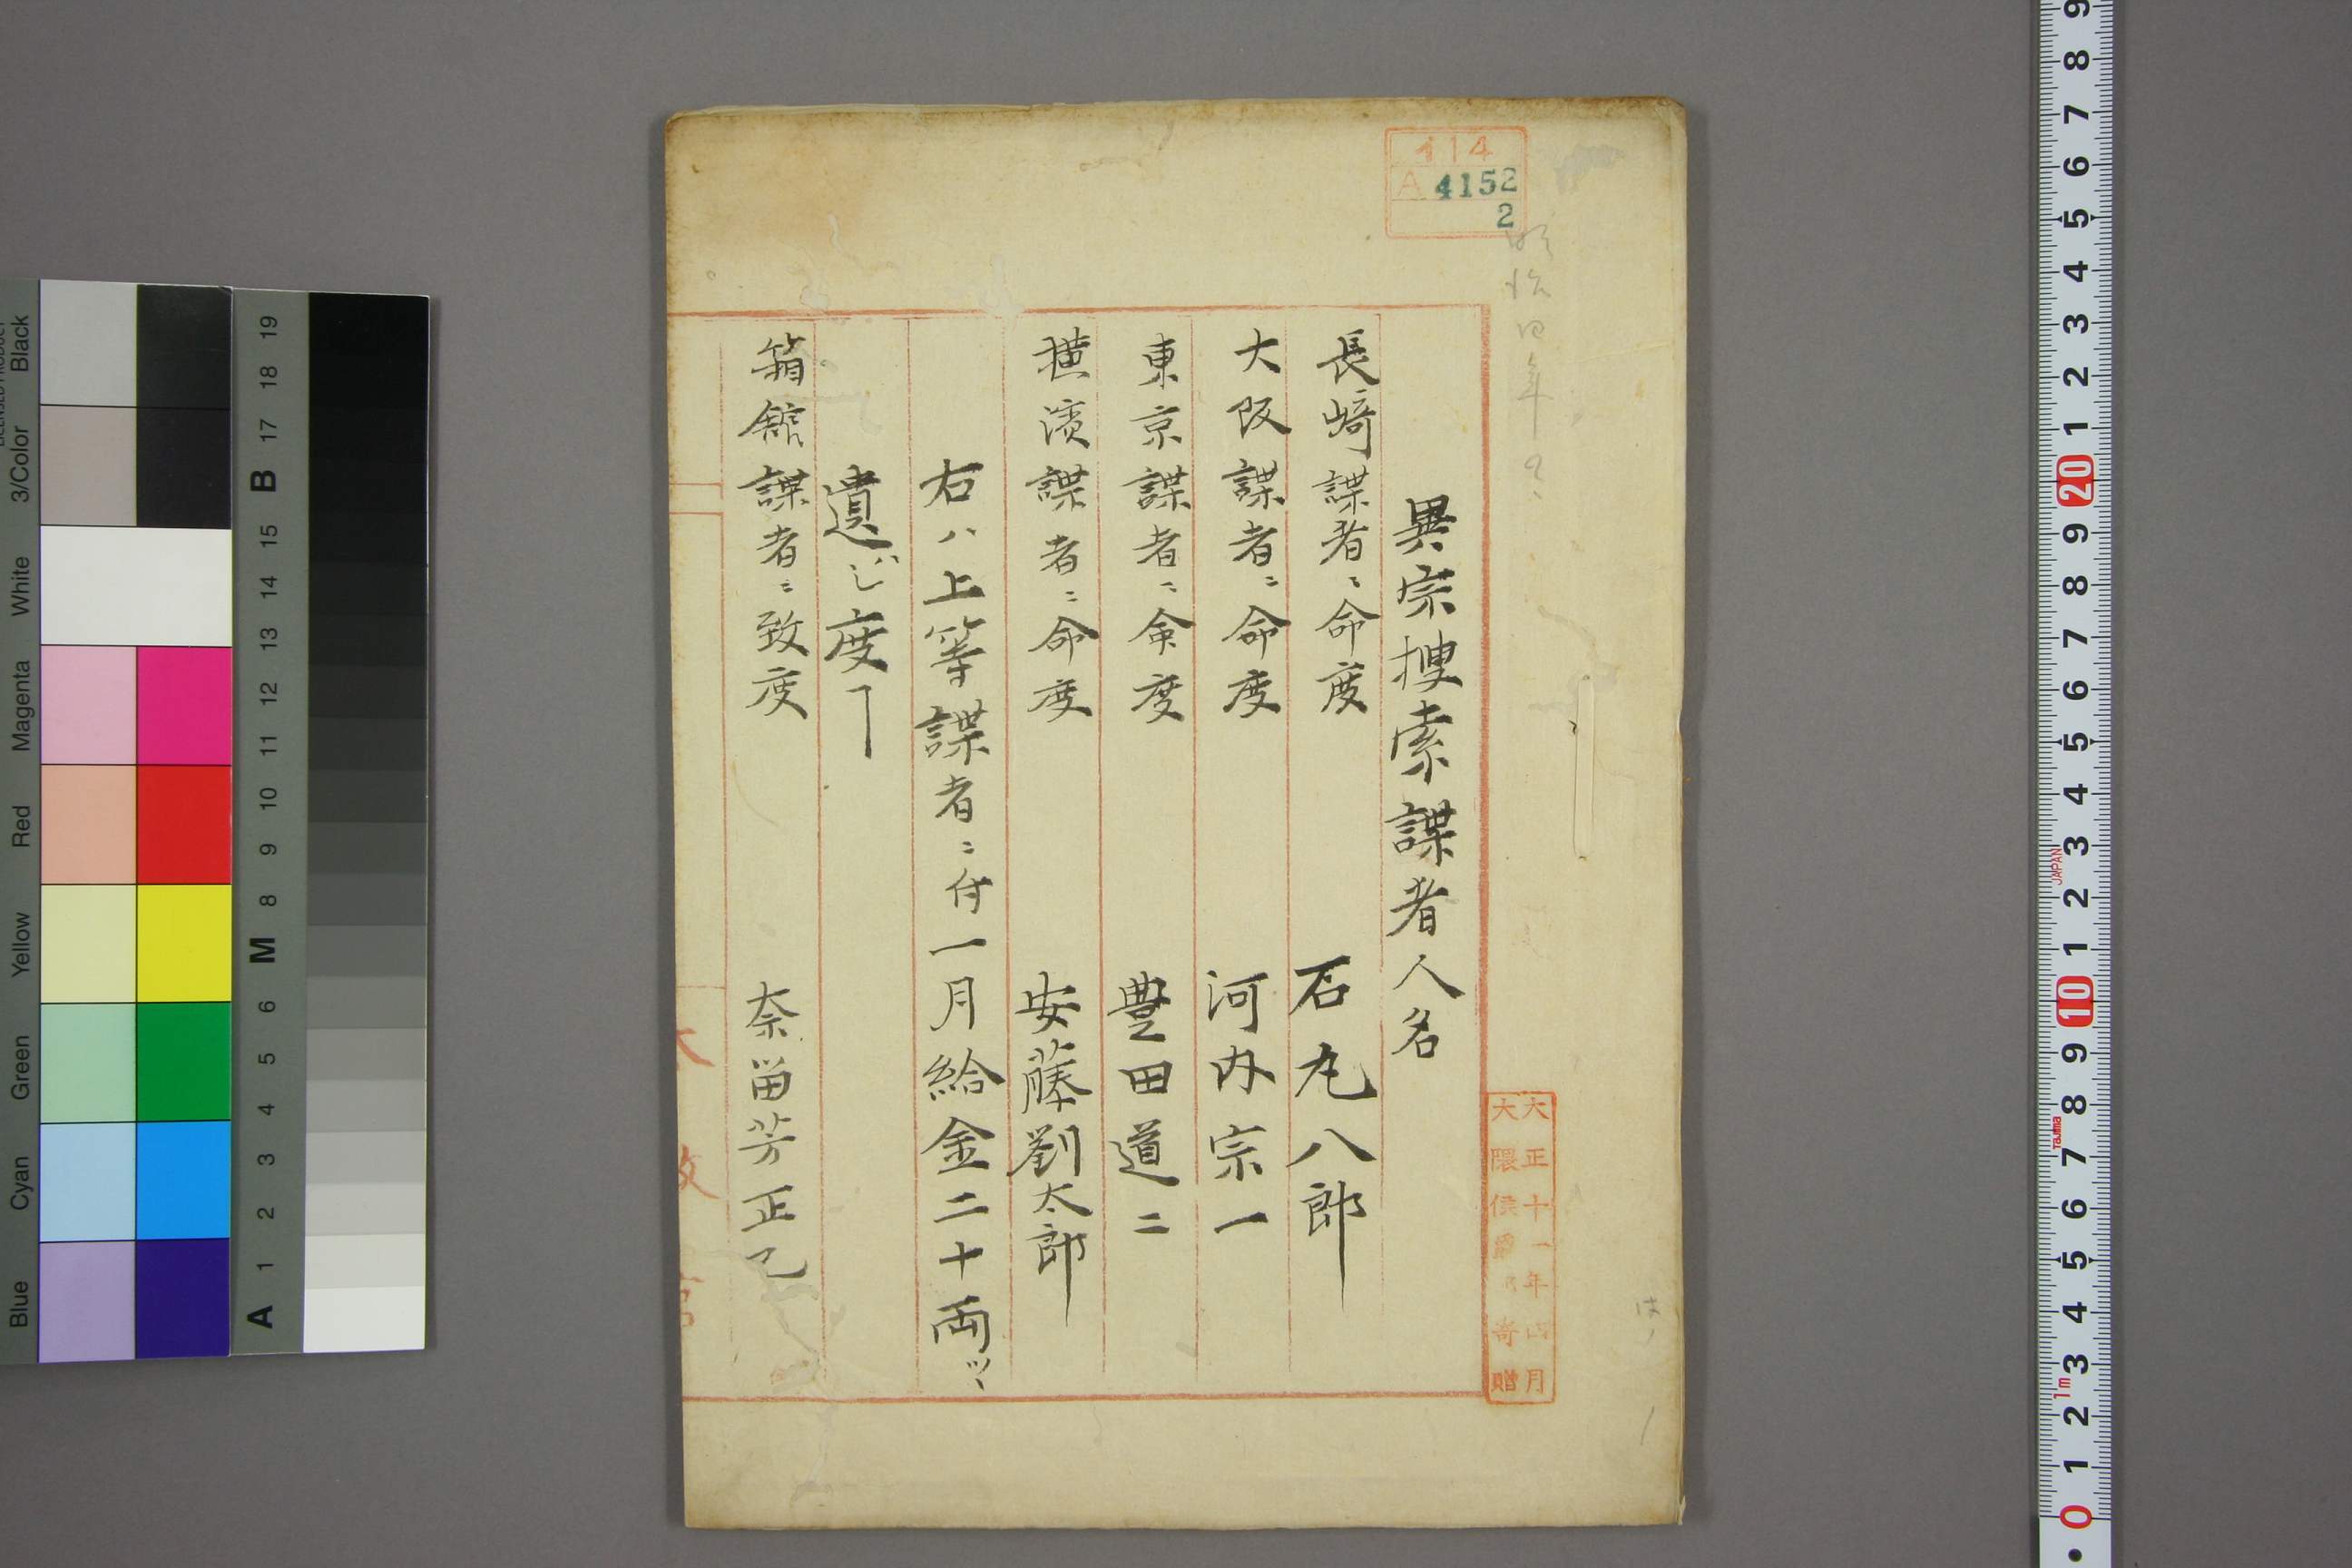 異宗捜索諜者人名
長﨑諜者ニ命度
石丸八郎
大阪諜者ニ命度
河内宗一
東京諜者ニ命度
豊田道二
横濱諜者ニ命度
安藤劉太郎
右ハ上等諜者ニ付一月給金二十両ツヽ
遣シ度ヿ
箱館諜者ニ致度
奈留芳正己
414
A 4152
2
明治四年
大正十一年四月
大隈侯爵家寄贈
LICENSED PRODUCT
Black
3/Color
White
Magenta
Red
Yellow
Green
Cyan
Blue
19
18
17
B
15
14
13
12
11
10
9
8
M
6
5
4
3
2
1
A
9
8
7
6
5
4
3
2
1
20
9
8
7
6
5
4
3
2
1
10
9
8
7
6
5
4
3
2
1
0
JAPAN
Tajima
1m